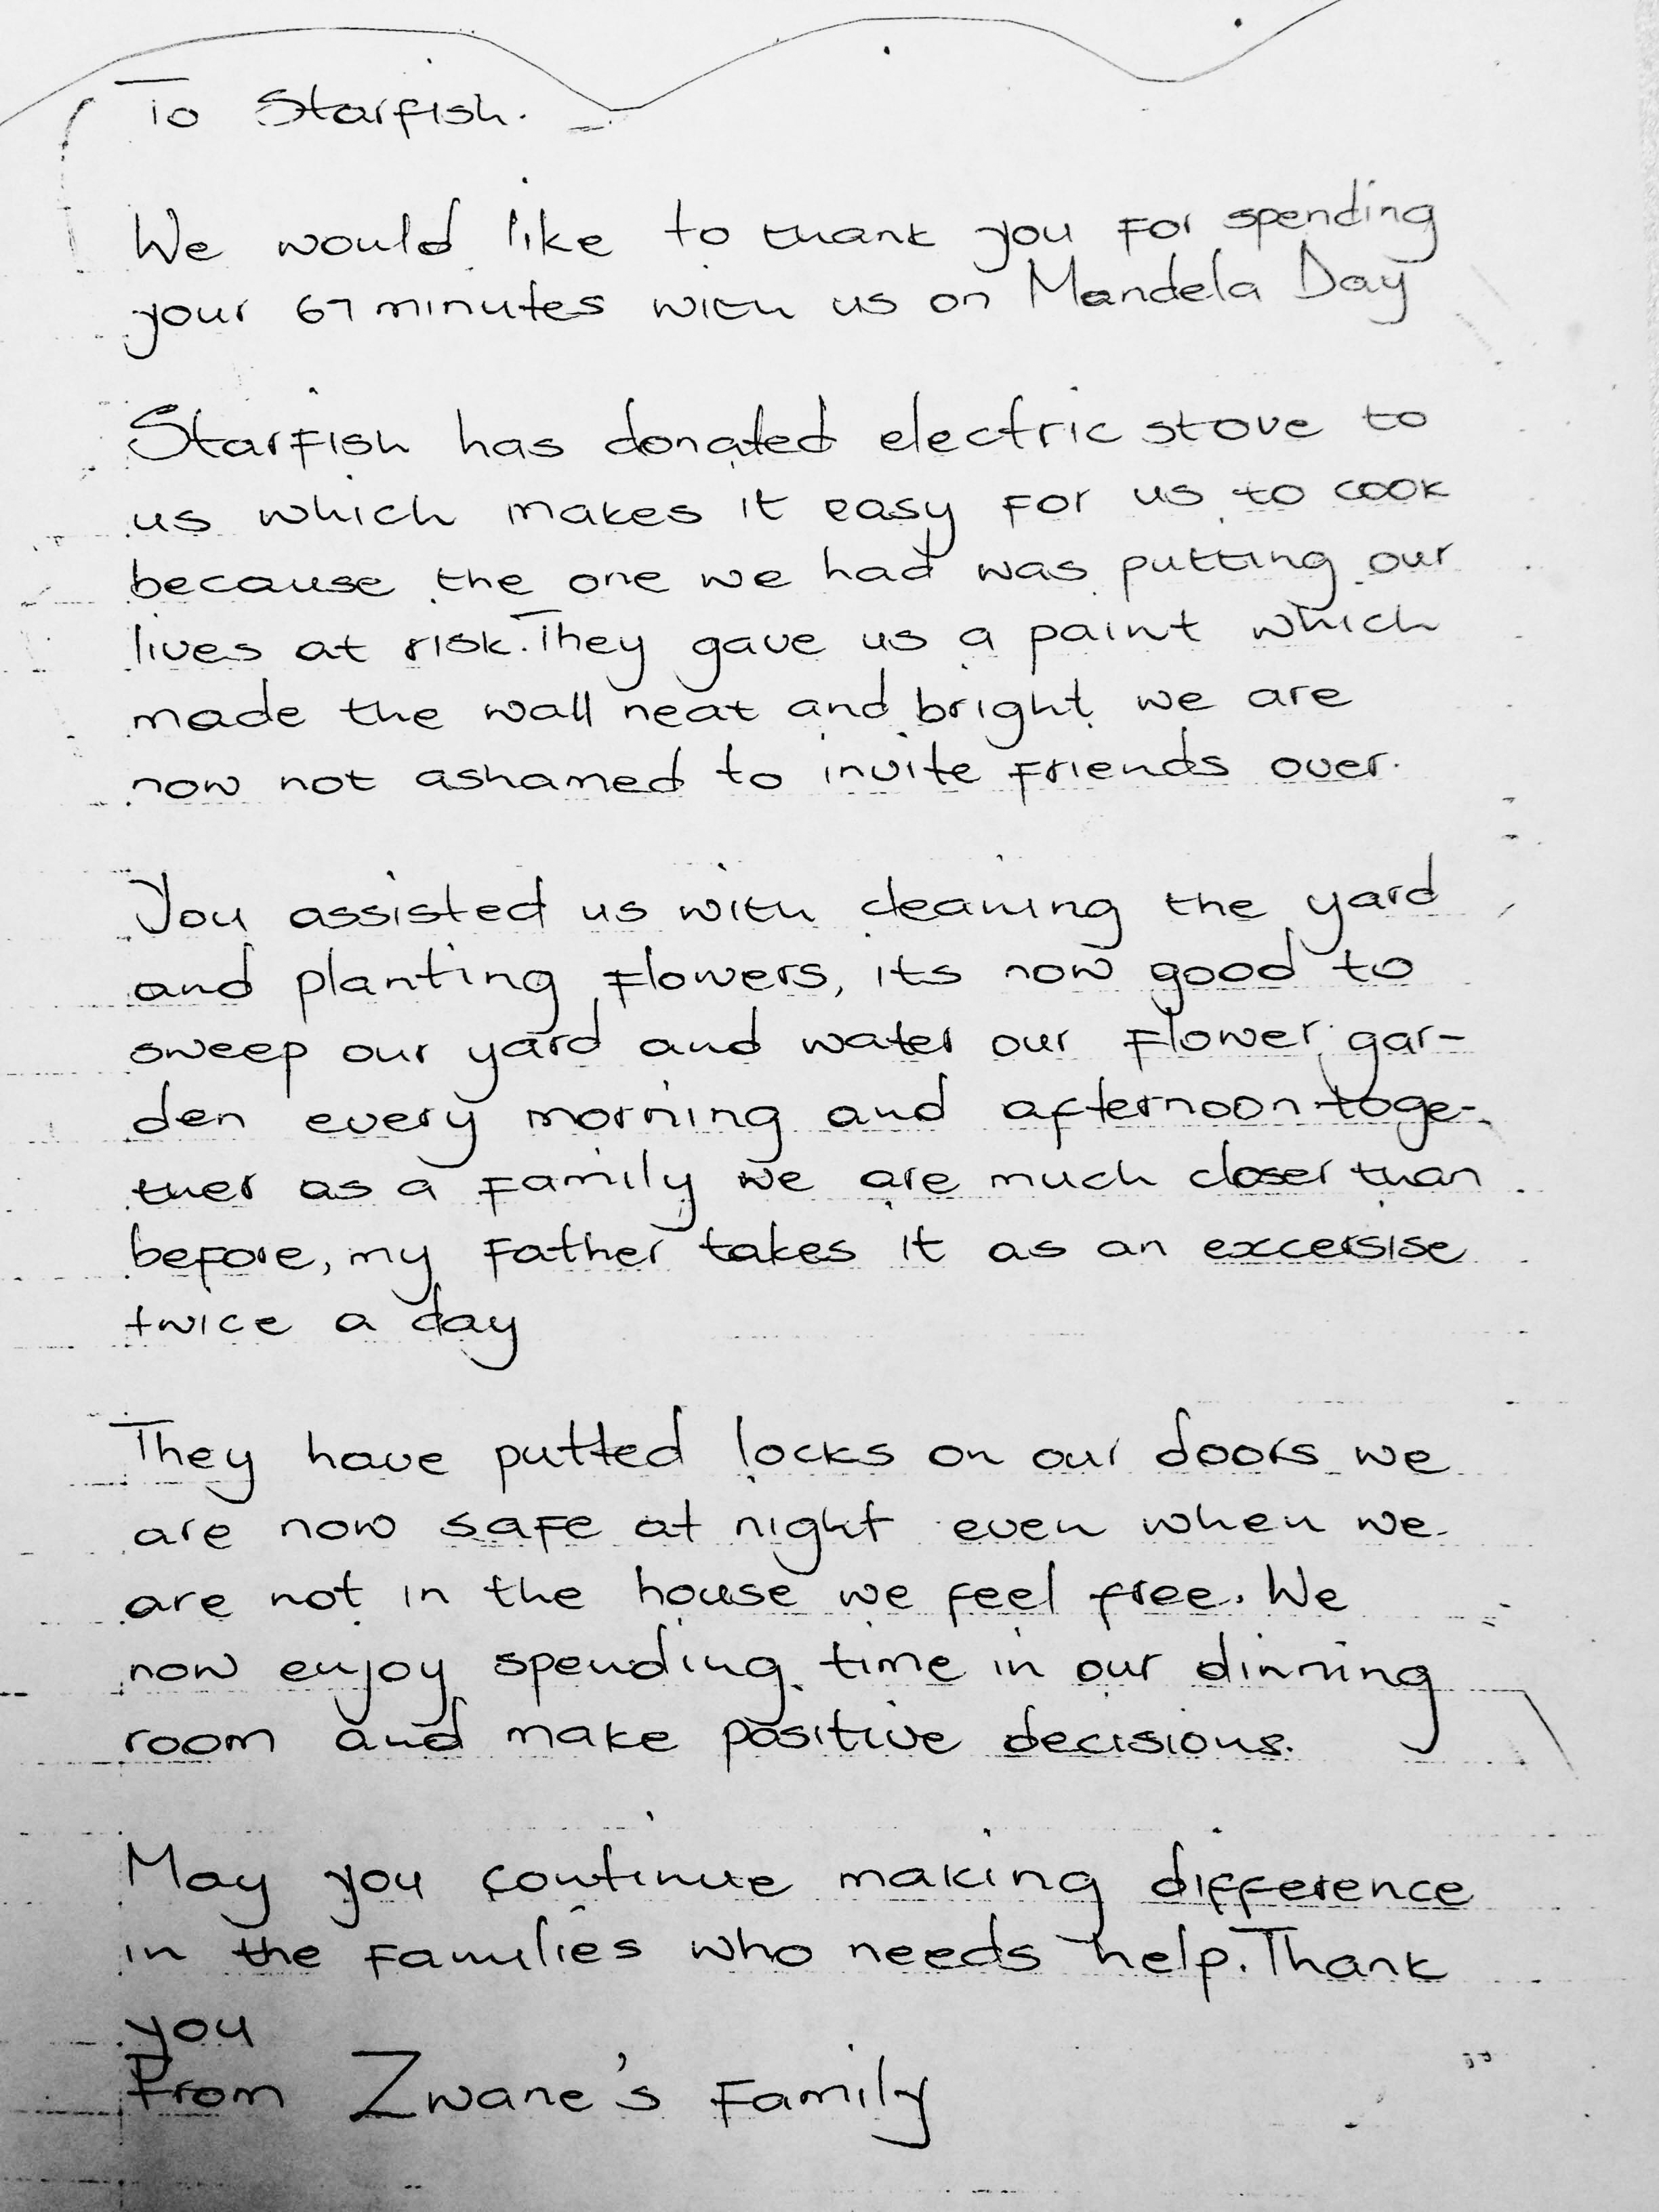 To Starfish.
We would like to thank you for spending
your 67 minutes with us on Mandela Day
Starfish has donated electric stove to
us which makes it easy for us to cook
because the one we had was putting our
lives at risk. They gave us a paint which
made the wall neat and bright we are
now not ashamed to invite friends over.
You assisted us with cleaning the yard
and planting flowers, its now good to
sweep our yard and water our flower gar-
den every morning and afternoon toge-
ther as a family we are much closer than
before, my father takes it as an excersise
twice a day
They have putted locks on our doors we
are now safe at night even when we
are not in the house we feel free. We
now enjoy spending time in our dinning
room and make positive decisions.
May you continue making difference
in the families who needs help. Thank
you
From Zwane's Family